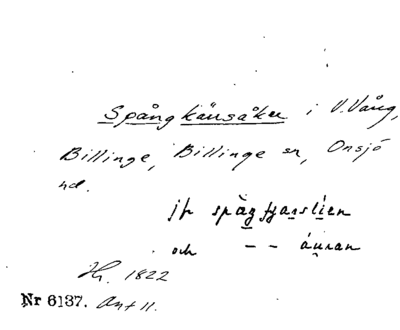 Spångkärsåker i V. Vång,
Billinge, Billinge sn, Onsjö
hd.
jfr spågtjarslien
och - - åuran
Hr. 1822
Nr 6137. Ant 11.